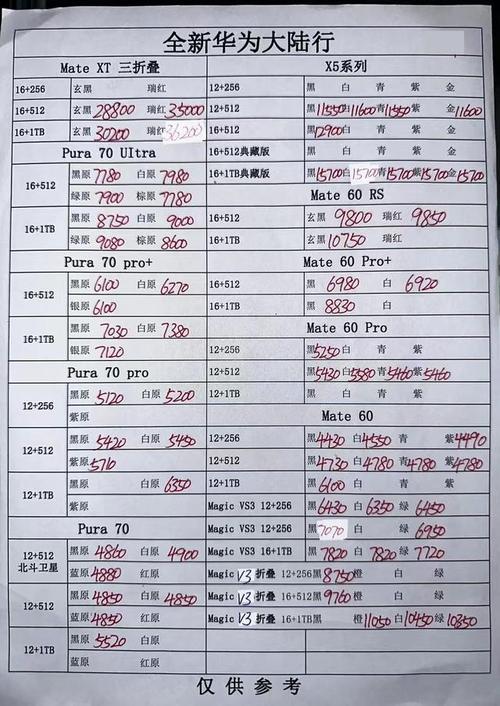 全新华为大陆行
Mate XT 三折叠
16+256 玄黑 瑞红
16+512 玄黑 28800 瑞红 35000
16+1TB 玄黑 30200 瑞红 36200
Pura 70 Ultra
16+512 黑原 7780 白原 7980
绿原 7900 棕原 7780
16+1TB 黑原 8750 白原 9000
绿原 9080 棕原 8600
Pura 70 pro+
16+512 黑原 6100 白原 6270
银原 6100
16+1TB 黑原 7030 白原 7380
银原 7120
Pura 70 pro
12+256 黑原 5120 白原 5200
紫原
12+512 黑原 5420 白原 5450
紫原 5710
12+1TB 黑原 白原 6350
紫原
Pura 70
12+512 北斗卫星 黑原 4860 白原 4900
蓝原 4880 红原
12+512 黑原 4850 白原 4850
蓝原 4850 红原
12+1TB 黑原 5520 白原
蓝原 红原
X5系列
12+256 黑 白 青 紫 金
12+512 黑 11550 白 11600 青 11550 紫 金 11600
16+1TB 黑 12900 白 青 紫 金
16+512典藏版 黑 白 青 紫 金
16+1TB典藏版 黑 15700 白 15700 青 15700 紫 15700 金 15700
Mate 60 RS
16+512 玄黑 9800 瑞红 9850
16+1TB 玄黑 10750 瑞红
Mate 60 Pro+
16+512 黑 6980 白 6920
16+1TB 黑 8830 白
Mate 60 Pro
12+256 黑 5250 白 青 紫
12+512 黑 5430 白 5580 青 5460 紫 5460
12+1TB 黑 白 青 紫
Mate 60
12+256 黑 4430 白 4550 青 紫 4490
12+512 黑 4730 白 4780 青 4780 紫 4780
12+1TB 黑 6100 白 青 紫
Magic VS3 12+256 黑 6430 白 6350 绿 6450
Magic VS3 12+512 黑 7070 白 绿 6950
Magic VS3 16+1TB 黑 7820 白 7820 绿 7720
Magic V3 折叠 12+256 黑 8750 橙 白 绿
Magic V3 折叠 16+512 黑 9760 橙 白 绿
Magic V3 折叠 16+1TB 黑 橙 11050 白 10450 绿 10350
仅供参考